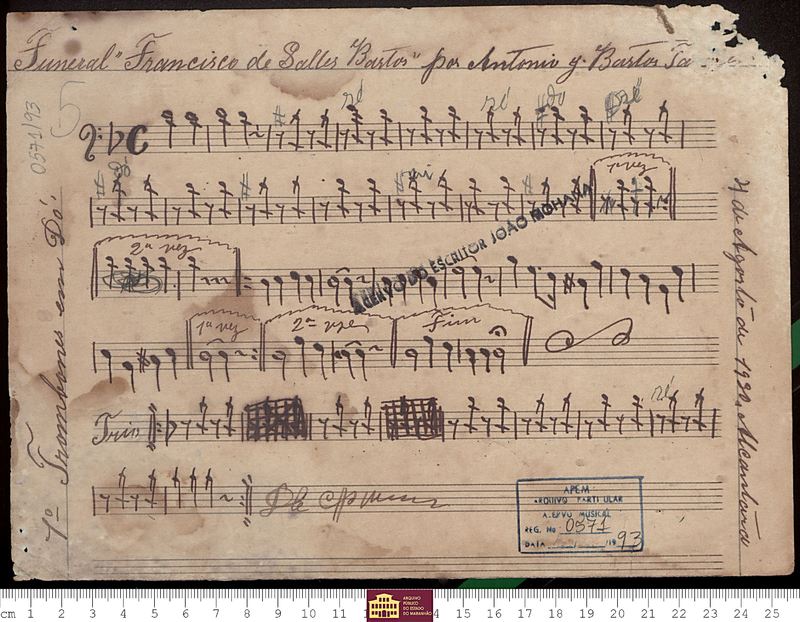 Funeral "Francisco de Salles Bastos" por Antonio J. Bastos
0571/93
5
1º Trombones em Dó.
ré
ré
do
1ª vez
2ª vez
1ª vez
2ª vez
Fim
Trio
ré
4 de Agosto de 1920. Alcantara
ACERVO DO ESCRITOR JOÃO MOHANA
APEM
ARQUIVO PARTICULAR
ACERVO MUSICAL
REG. No 0571
DATA / /19 93
cm 1 2 3 4 5 6 7 8 9 10 11 14 15 16 17 18 19 20 21 22 23 24 25
ARQUIVO
PÚBLICO
DO ESTADO
DO MARANHÃO